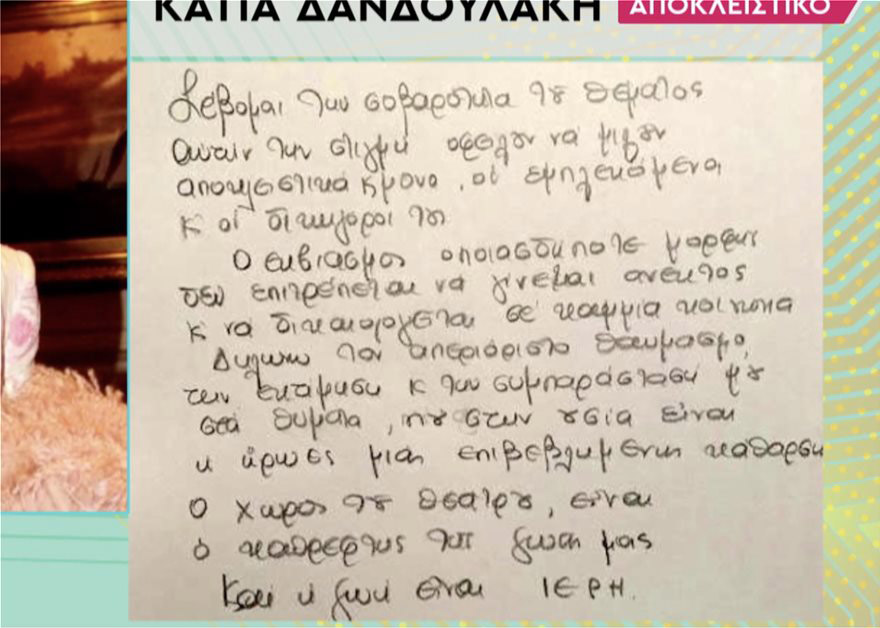 ΚΑΤΙΑ ΔΑΝΔΟΥΛΑΚΗ
ΑΠΟΚΛΕΙΣΤΙΚΟ
Σέβομαι την σοβαρότητα τȣ θέματος
Αυτήν την στιγμή οφείλȣν να μιλȣν
αποκλειστικά κ μόνο, οι εμπλεκόμενοι
κ οι δικηγόροι τȣς
Ο εκβιασμος οποιασδηποτε μορφης
δεν επιτρέπεται να γίνεται ανεκτος
κ να δικαιολογείται σε καμμια κοινωνια
Δηλωνω τον απεριόριστο θαυμασμο,
την εκτίμηση κ την συμπαράσταση μȣ
στα θυματα, πȣ στην ȣσία είναι
κ ήρωες μιας επιβεβλημενης κάθαρσης
Ο χωρος τȣ θεατρȣ, είναι
ο καθρεφτης της ζωης μας
Και η ζωή είναι ΙΕΡΗ.